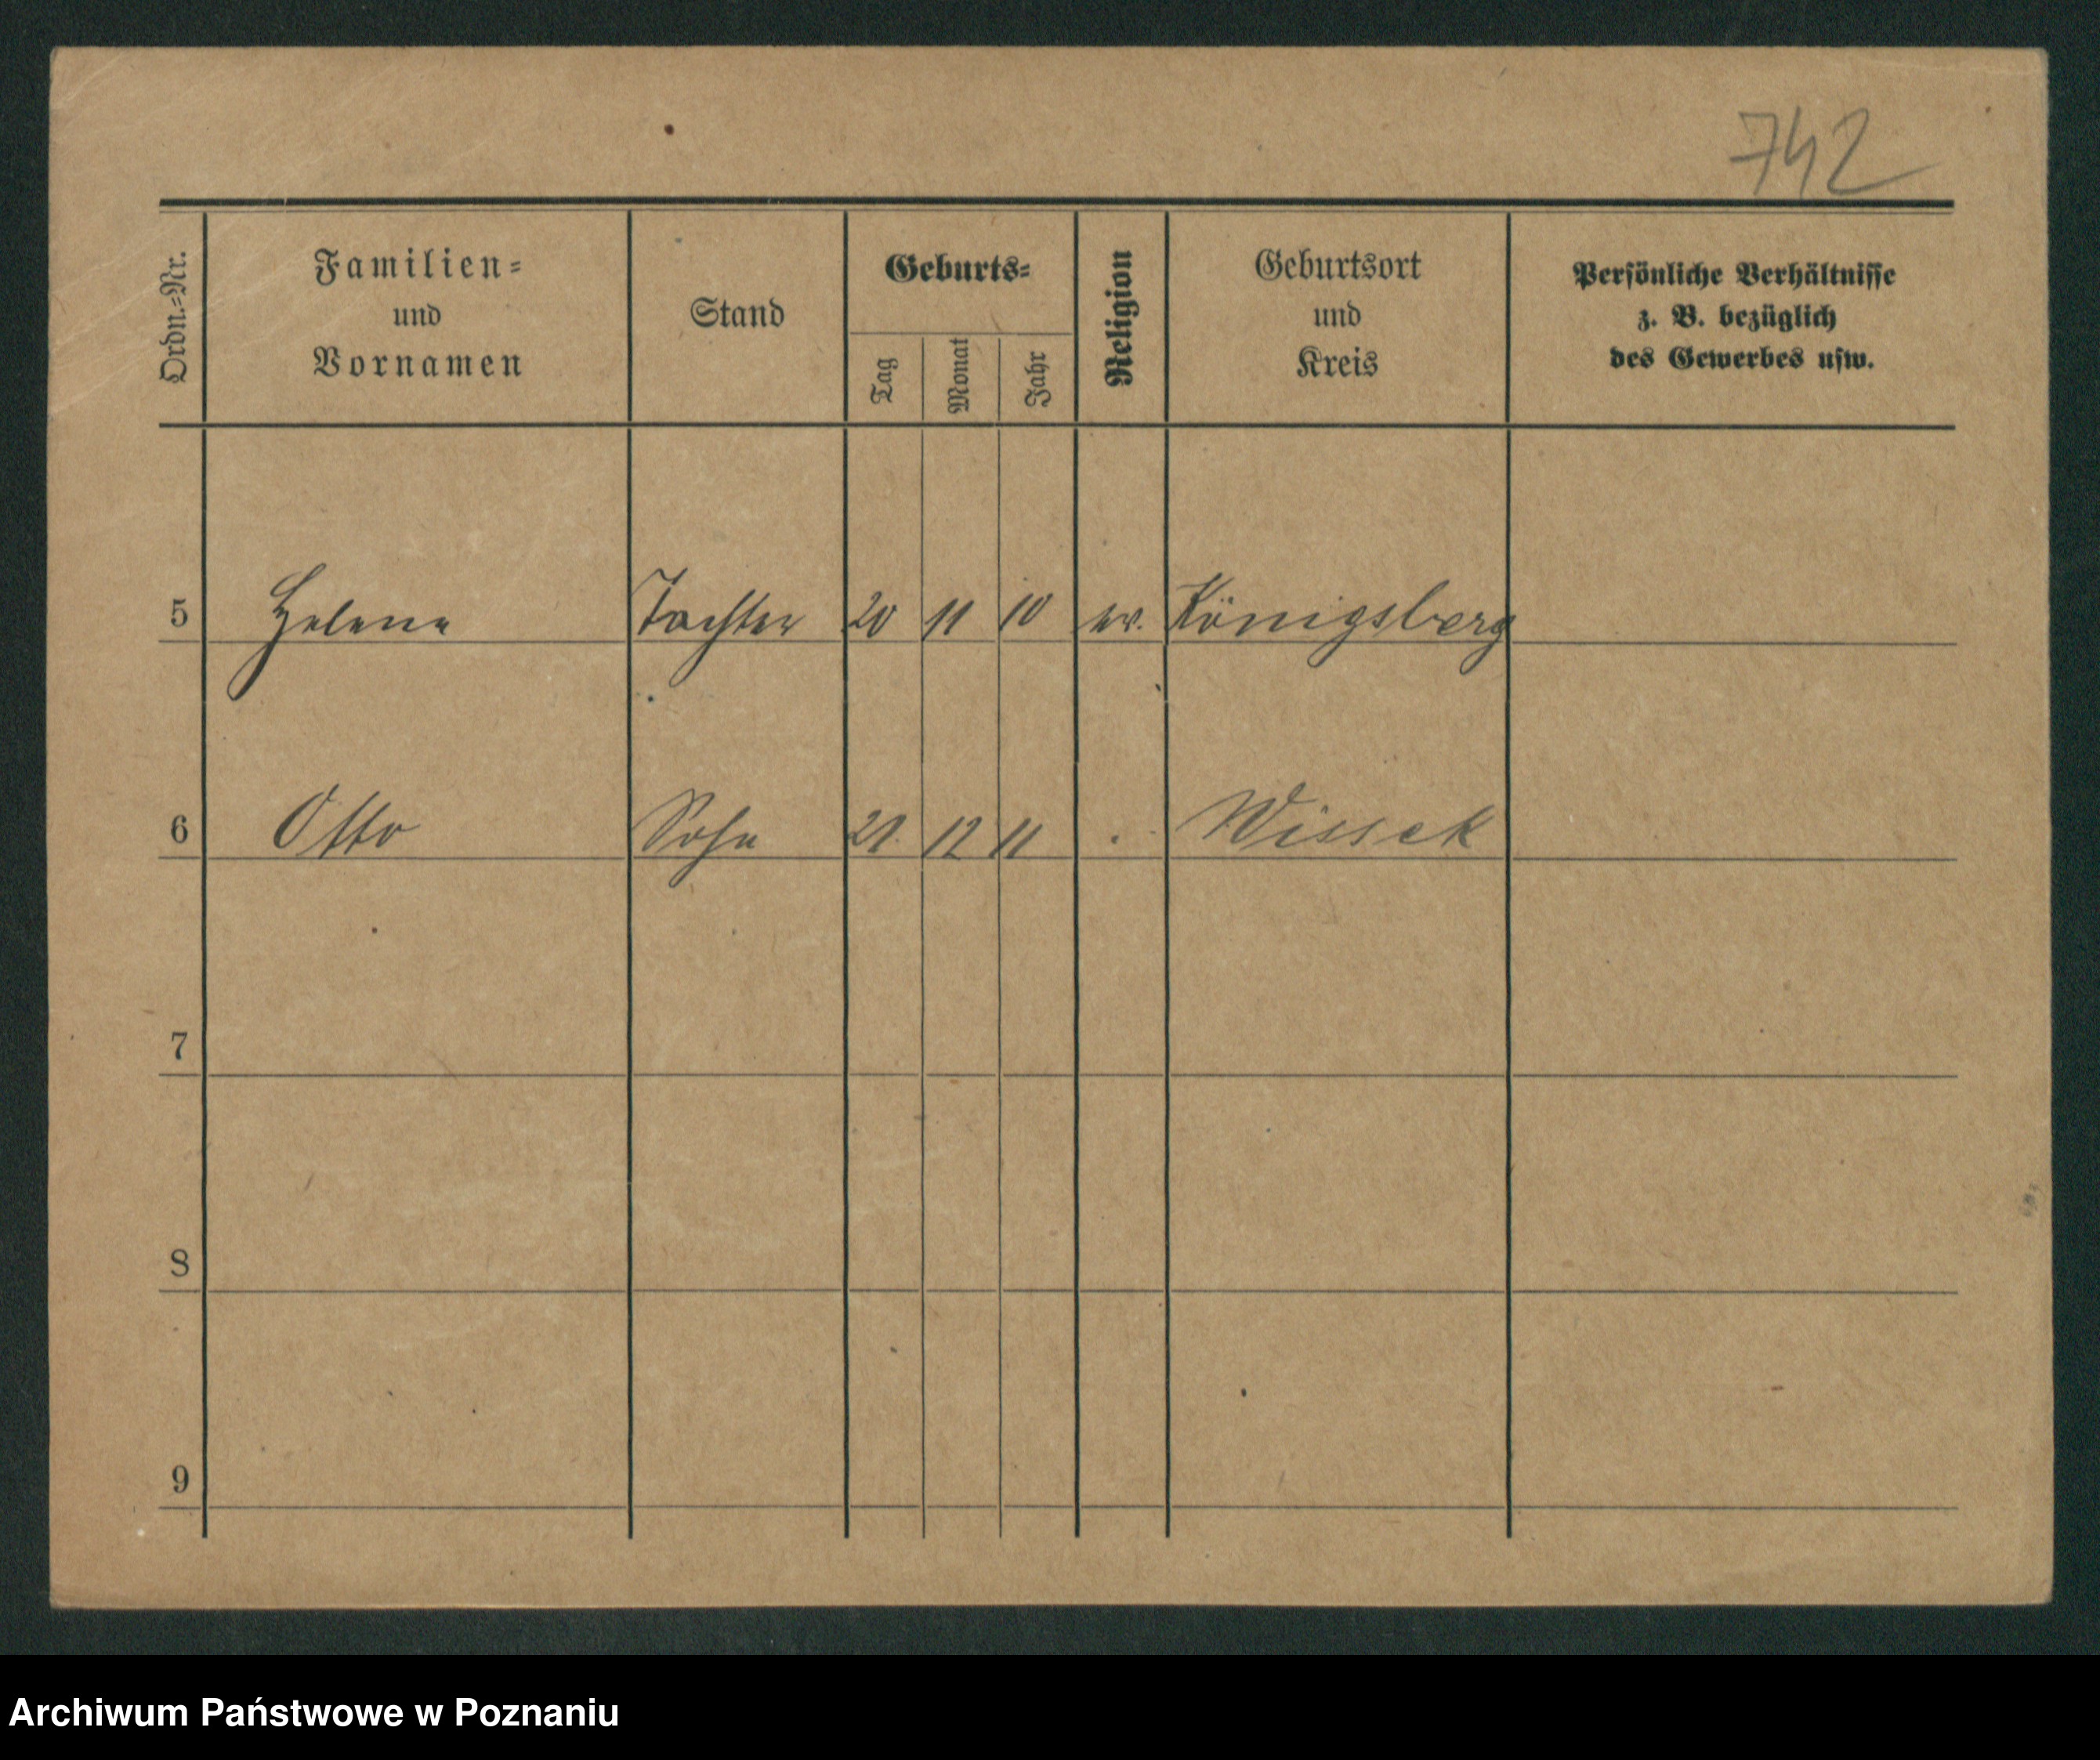 742
Ordn.-Nr.
Familien-
und
Vornamen
Stand
Geburts-
Tag
Monat
Jahr
Religion
Geburtsort
und
Kreis
Persönliche Verhältnisse
z. B. bezüglich
des Gewerbes usw.
5 Helene Tochter 20 11 10 ev. Königsberg
6 Otto Sohn 21. 12 11 . Wissek
7
8
9
Archiwum Państwowe w Poznaniu